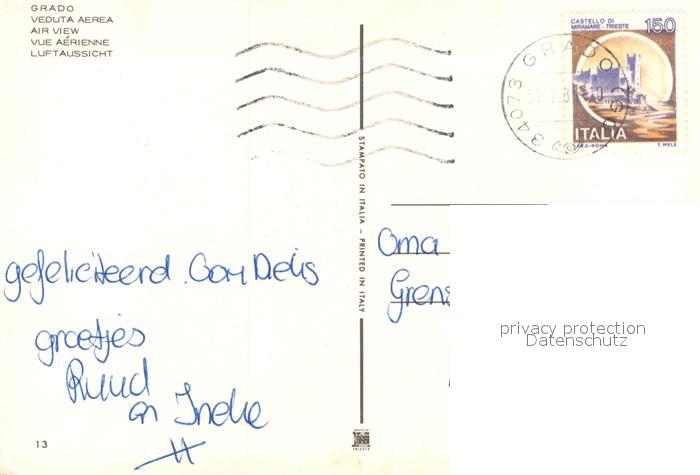 GRADO
VEDUTA AEREA
AIR VIEW
VUE AÉRIENNE
LUFTAUSSICHT
CASTELLO DI
MIRAMARE - TRIESTE
150
34073 GRADO
ITALIA
T. MELE
STAMPATO IN ITALIA - PRINTED IN ITALY
Oma
Grens
gefeliciteerd
groetjes
Ruud
en Ineke
privacy protection
Datenschutz
13
TRIESTE